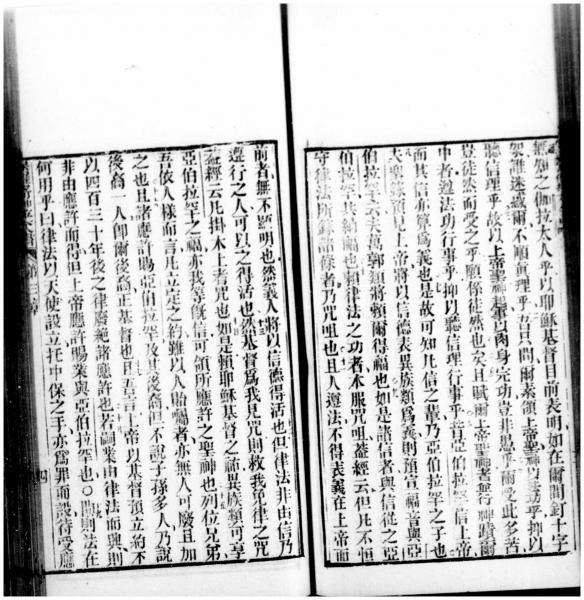 無知之伽拉太人乎以耶穌基督目前表明如在爾間釘十字
架誰迷惑爾不順眞理乎吾只問爾素領上帝聖神以務功乎抑以
聽信理乎故以上帝聖神肇始以肉身完功豈非愚乎爾受此多苦
豈徒然而受之乎願係徒然也矣且賦爾上帝聖神者並行神蹟爾
中者遵法功行事乎抑以聽信理行事乎昔亞伯拉罕信上帝
而其信亦算爲義也是故可知凡信之輩乃亞伯拉罕之子也
夫聖錄預見上帝將以信德表異族類爲義則預宣福音與亞
伯拉罕云矣萬郭類將賴爾得福也如是諸信者與信徒之亞
伯拉罕共納福也賴律法之功者本服咒咀蓋經云但凡不恒
守律法所錄諸條者乃咒咀也且人遵法不得表義在上帝而
前者無不顯明也然義人將以信德得活也但律法非由信乃
遵行之人可以之得活也然基督爲我見咒則救我免律之咒
蓋經云凡掛木上者咒也如是賴耶穌基督之諭異族類可享
亞伯拉罕之福亦我等旣信可領所應許之聖神也列位兄弟
吾依人樣而言凡立定之約雖以人貽囑者亦無人可廢且加
之也且諸應許賜亞伯拉罕及其後裔但不說子孫多人乃說
後裔一人卽爾後裔正基督也且吾言上帝以基督預立約不
以四百三十年後之律廢絶諸應許也若嗣業由律法而與則
非由應許而得但上帝應許賜業與亞伯拉罕也○問則法在
何用乎曰律法以天使設立托中保之手亦爲罪而設待受應
第三章
四